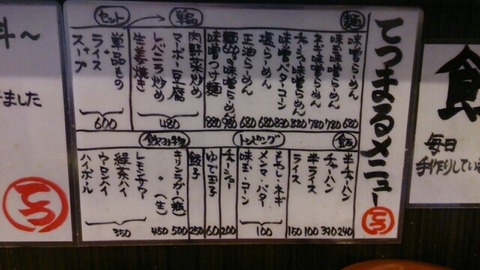 てつまるメニュー
てつ
麺
味噌らーめん 680
味玉味噌らーめん 780
ネギ味噌らーめん 780
チャーシュー味噌らーめん
味噌バターコーン 830
塩らーめん 680
正油らーめん 680
味噌つけ麺 880
単品
肉野菜炒め
マーボー豆腐
レバニラ炒め
生姜焼き
480
セット
単品もの
ライス
スープ
600
飯
半チャーハン 240
チャーハン 390
半ライス 100
ライス 150
トッピング
メンマ・ネギ
メンマ・バター
味玉・コーン
100
チャーシュー 200
ゆで玉子 60
餃子 250
飲み物
キリンラガー(瓶) 500
〃(生) 450
レモンサワー
緑茶ハイ
ウーロンハイ
ハイボール
350
飯
毎日
手作りしてい
料〜
ました
てつ